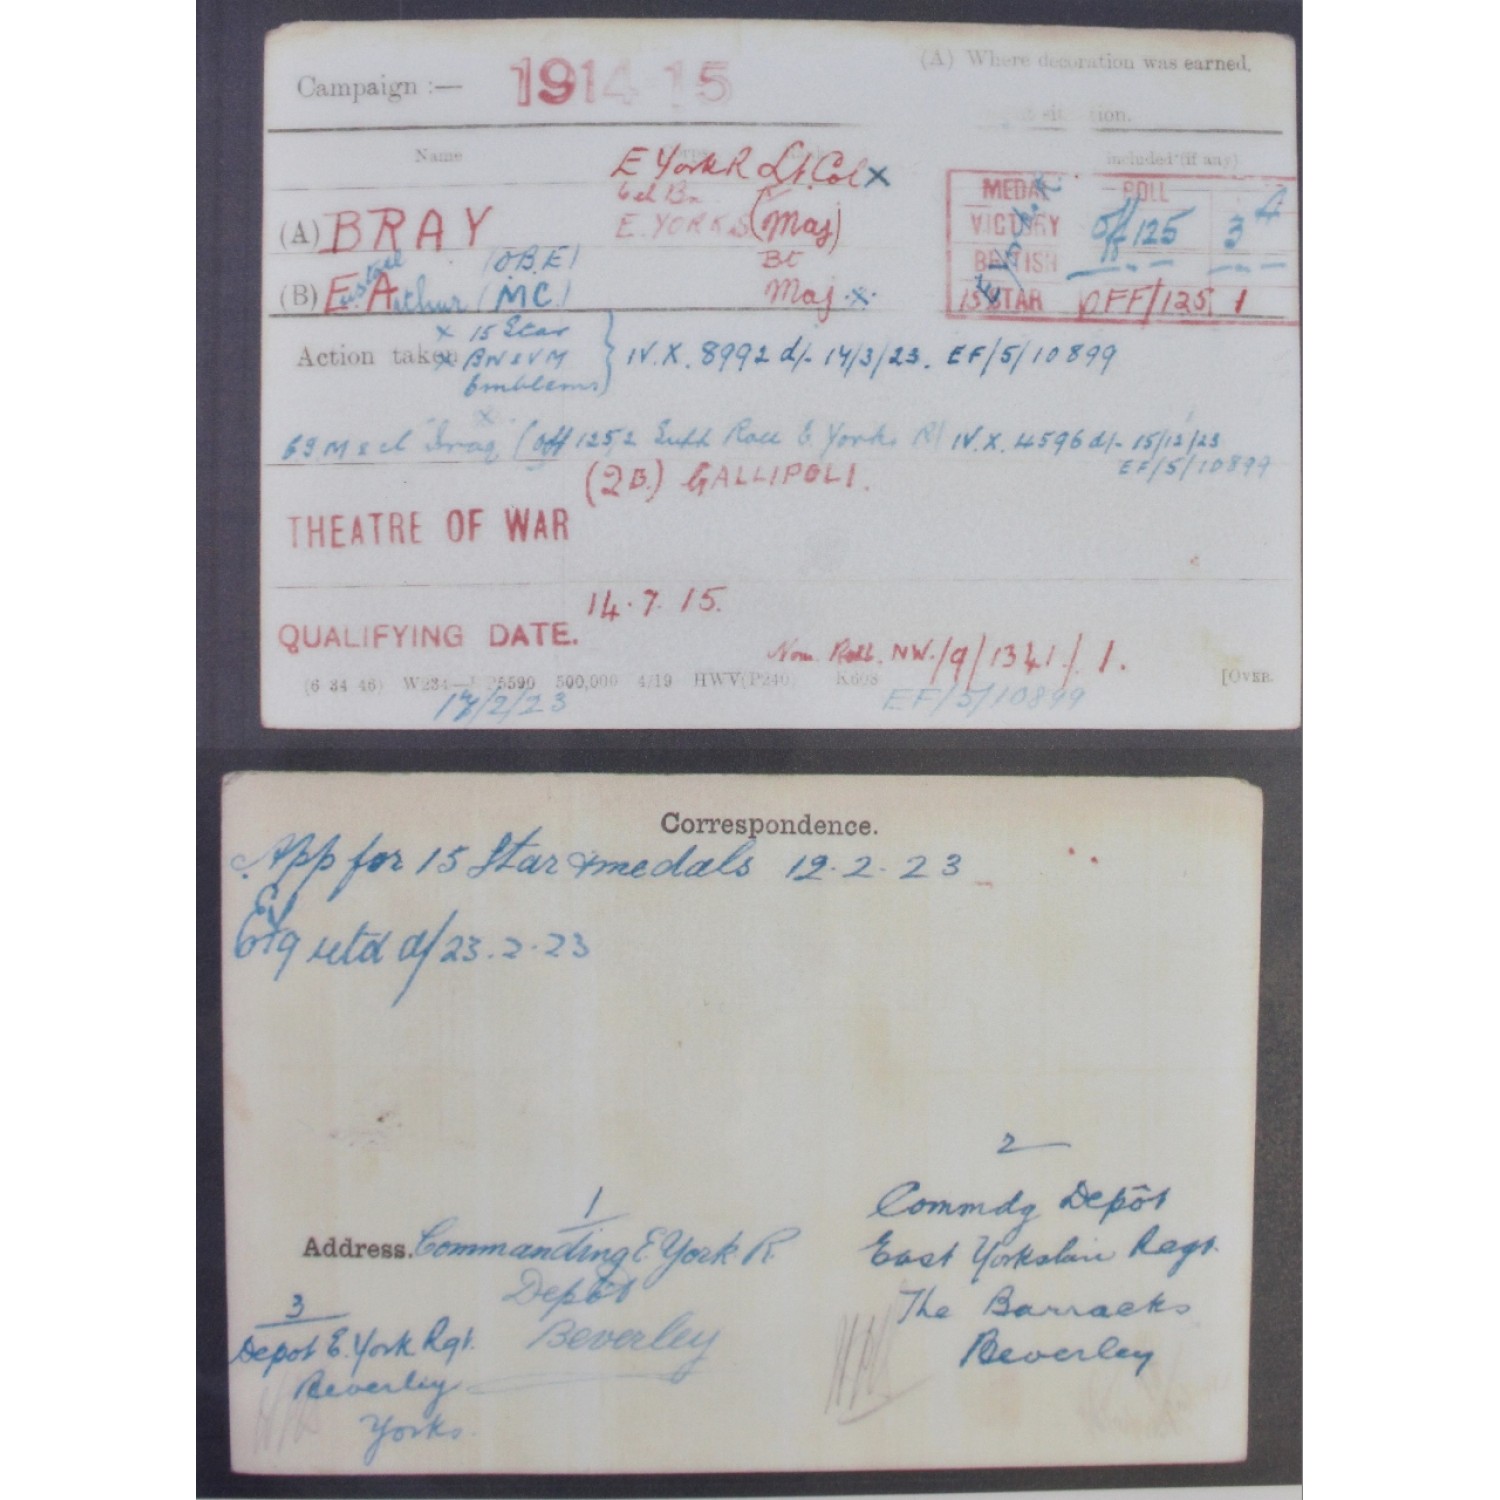 Campaign :— 1914 15
(A) Where decoration was earned.
Name
E York R Lt. Col x
included (if any)
MEDAL ROLL
(A) BRAY
E. YORKS (Maj)
VICTORY Off 125 3
(O.B.E)
Bt
BRITISH
(B) E. A Arthur (M.C.)
Maj x
15 STAR OFF/125 1
x 15 Star
Action taken x BW & VM
Emblems
IV. X. 8992 d/- 14/3/23. EF/5/10899
G S M & cl "Iraq" (Off 125 E Yorks R) IV. X. 4596 d/- 15/12/23
EF/5/10899
(2B.) GALLIPOLI.
THEATRE OF WAR
14. 7. 15.
QUALIFYING DATE.
Nom. Roll. NW./9/1341/1.
(6 34 46) W234— 5590 500,000 4/19 HWV(P240) K608 [OVER.
/2/23
EF/5/10899
Correspondence.
App for 15 Star & medals 12. 2. 23
retd d/ 23. 2. 23
1
Address. Commanding E. York R.
Depôt
Beverley
2
Commdg Depôt
East Yorkshire Regt.
The Barracks
Beverley
3
Depot E. York Rgt.
Beverley
Yorks.